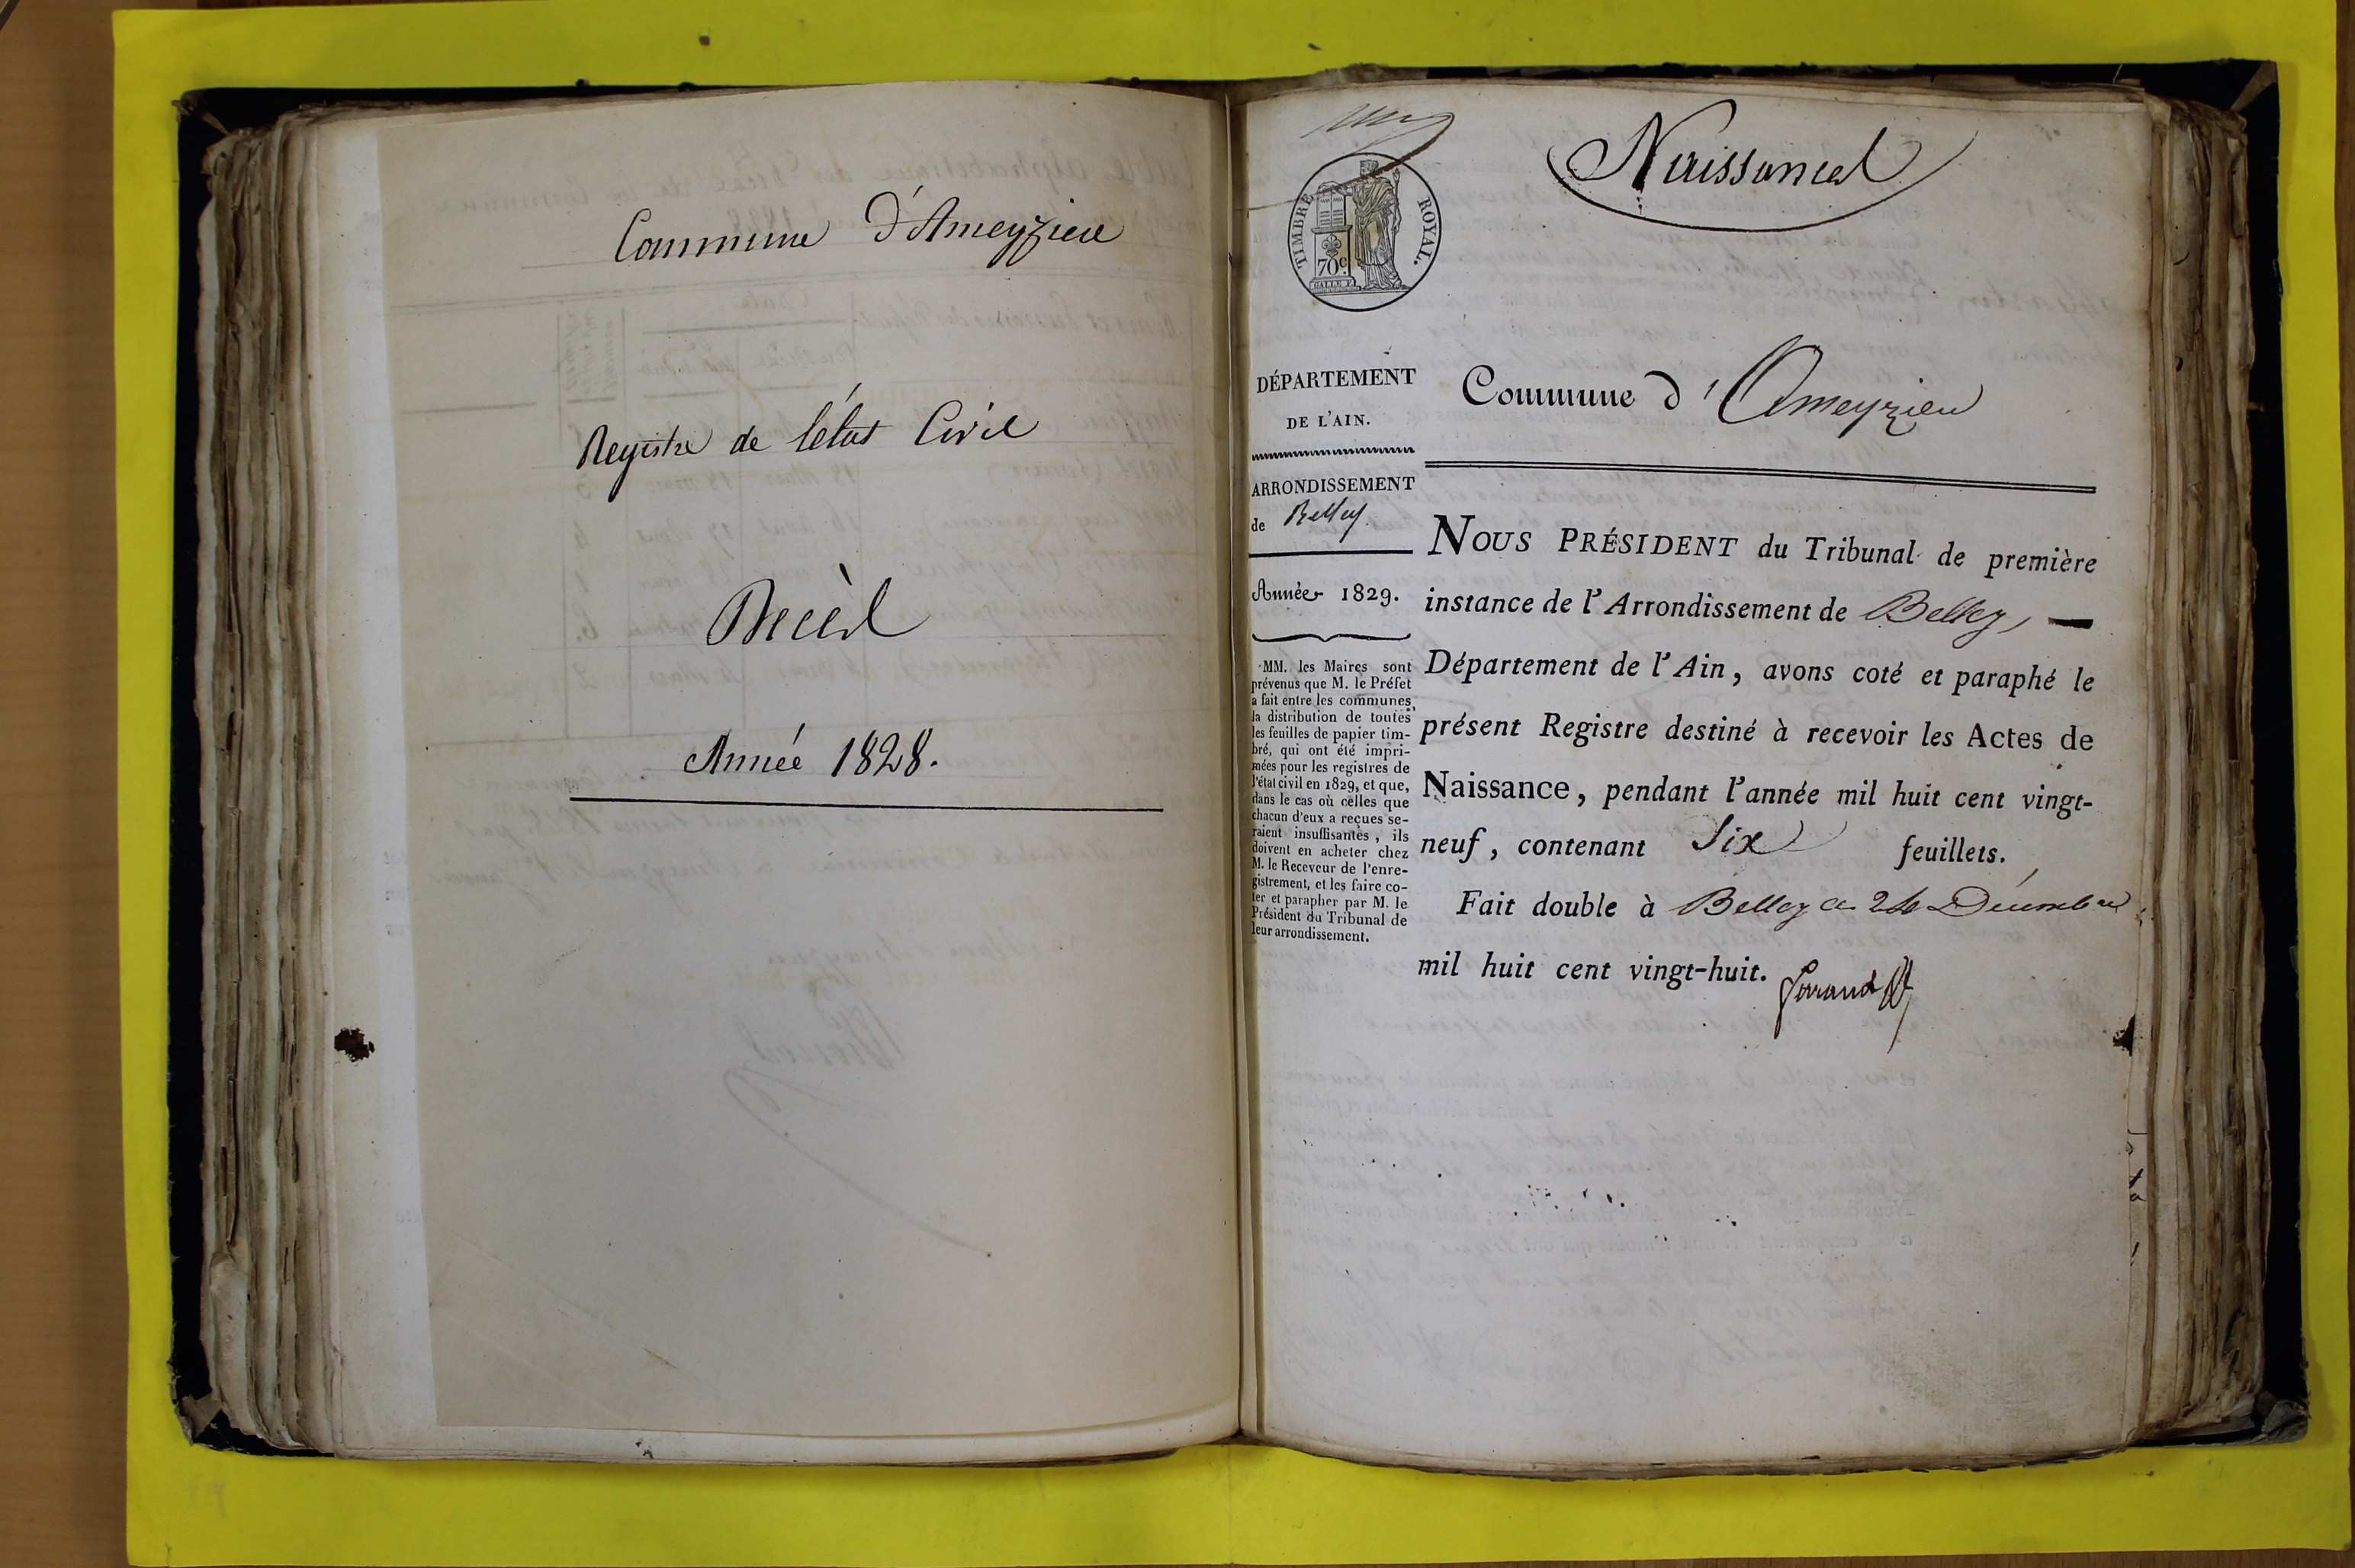 Commune d'Ameyzieu
Registre de l'état Civil
Décès
Année 1828.
Naissances
TIMBRE ROYAL.
70c
DÉPARTEMENT
DE L'AIN.
ARRONDISSEMENT
de Belley
Année 1829.
MM. les Maires sont
prévenus que M. le Préfet
a fait entre les communes
la distribution de toutes
les feuilles de papier tim-
bré, qui ont été impri-
mées pour les registres de
l'état civil en 1829, et que,
dans le cas où celles que
chacun d'eux a reçues se-
raient insuffisantes, ils
doivent en acheter chez
M. le Receveur de l'enre-
gistrement, et les faire co-
ter et parapher par M. le
Président du Tribunal de
leur arrondissement.
Commune d'Ameyzieu
NOUS PRÉSIDENT du Tribunal de première
instance de l'Arrondissement de Belley,
Département de l'Ain, avons coté et paraphé le
présent Registre destiné à recevoir les Actes de
Naissance, pendant l'année mil huit cent vingt-
neuf, contenant Six feuillets.
Fait double à Belley ce 24 Décembre
mil huit cent vingt-huit.